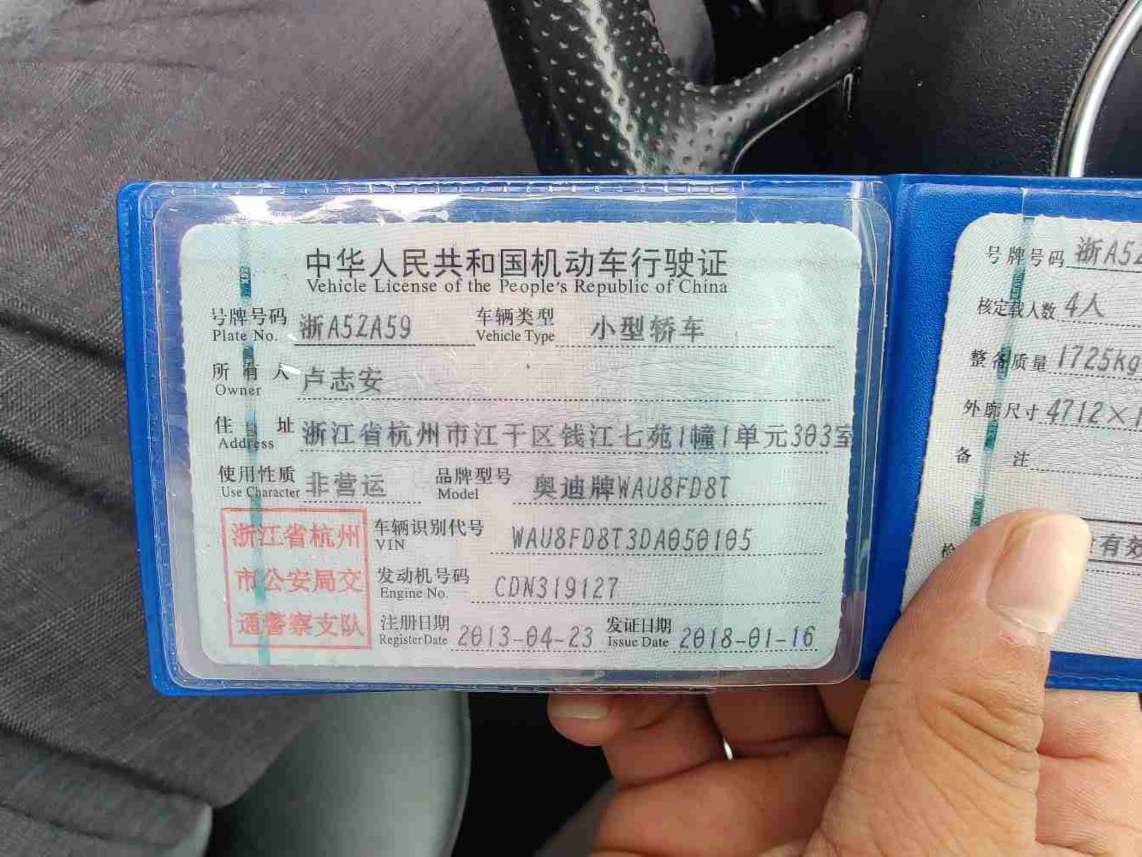 中华人民共和国机动车行驶证
Vehicle License of the People's Republic of China
号牌号码 浙A5ZA59 车辆类型 小型轿车
Plate No. Vehicle Type
所有人 卢志安
Owner
住址 浙江省杭州市江干区钱江七苑1幢1单元303室
Address
使用性质 非营运 品牌型号 奥迪牌WAU8FD8T
Use Character Model
浙江省杭州
市公安局交
通警察支队
车辆识别代号 WAU8FD8T3DA050105
VIN
发动机号码 CDN319127
Engine No.
注册日期 2013-04-23 发证日期 2018-01-16
Register Date Issue Date
号牌号码 浙A5Z
核定载人数 4人
整备质量 1725kg
外廓尺寸 4712×1
备注
有效